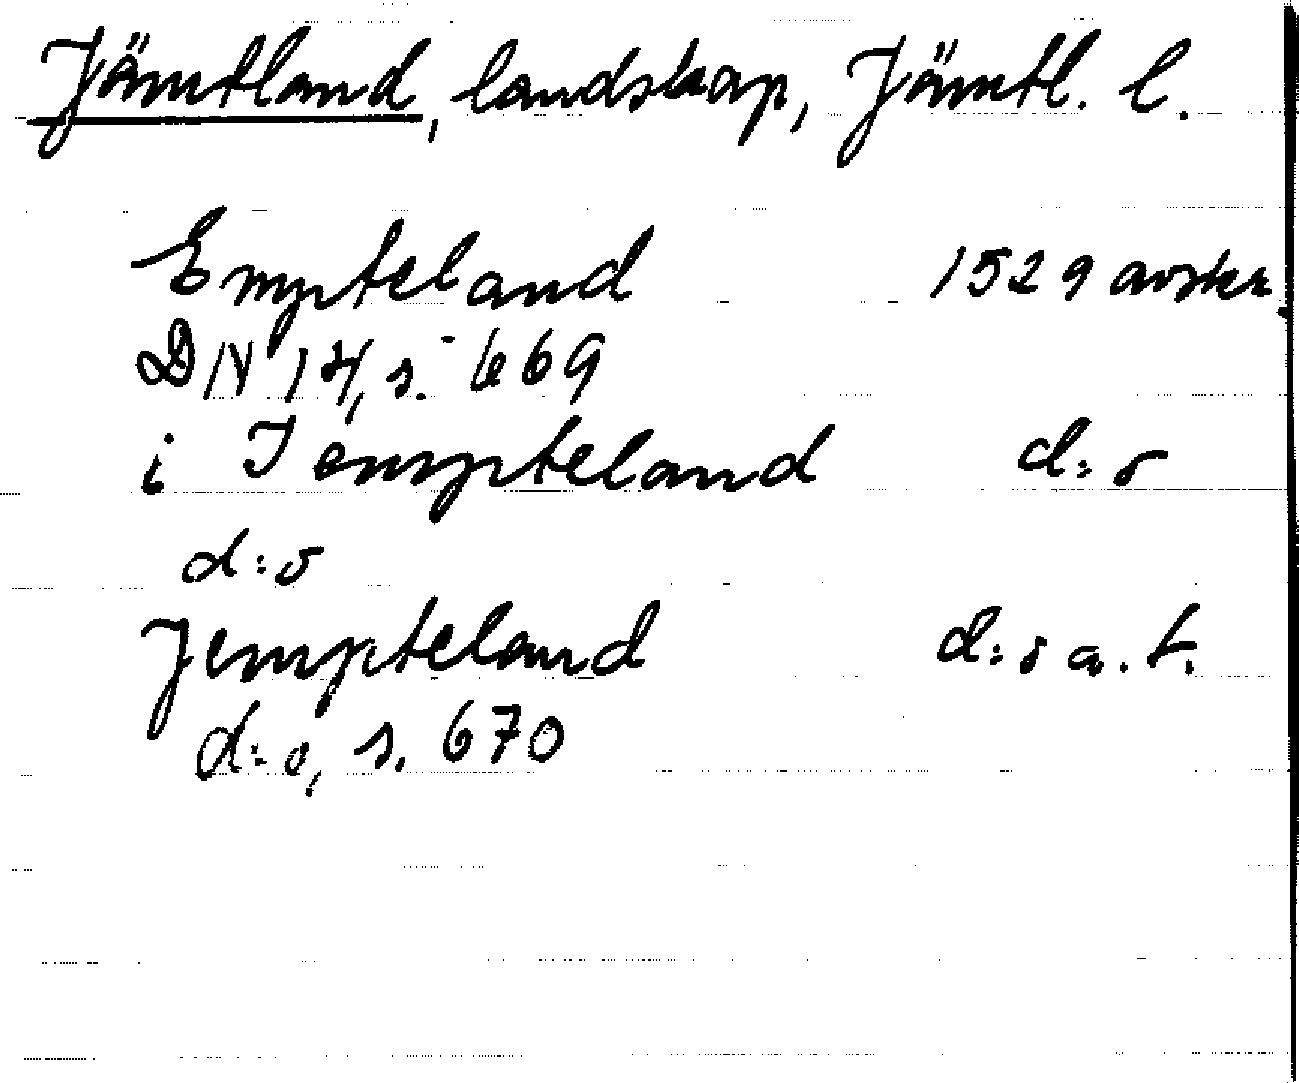 Jämtland, landskap, Jämtl. l.
Empteland 1529 avskr.
DN 14, s. 669
i Iempteland d:o
d:o
Jempteland d:o a. st.
d:o, s. 670